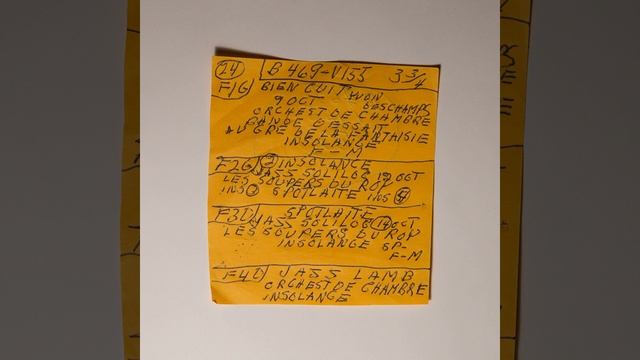 24 B 469-V155 3 3/4
F1G BIEN CUIT YVON
9 OCT DESCHAMPS
ORCHEST DE CHAMBRE
BANDE DESSAIT
AU GRE DE LA FANTAISIE
INSOLANGE
F-M
F2G INSOLANGE
JASS SOLILOG 12 OCT
LES SOUPERS DU ROY
INS SPOTLAITE INS
F3D SPOTLAITE
JASS SOLILOG 14 OCT
LES SOUPERS DU ROY
INSOLANGE SP-
F-M
F4D JASS LAMB
ORCHEST DE CHAMBRE
INSOLANGE